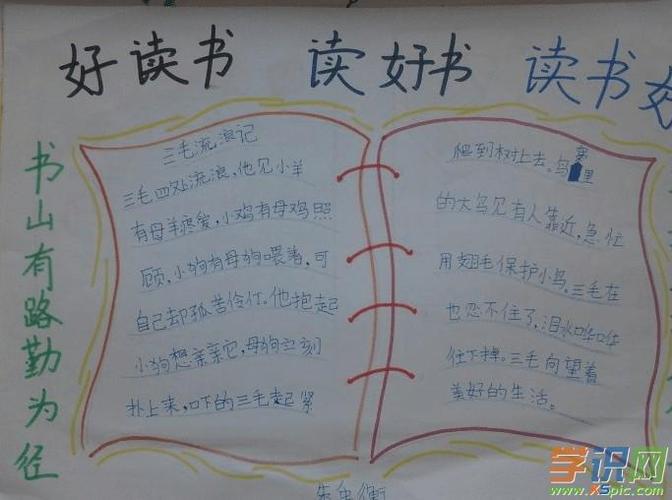 好读书 读好书 读书好
书山有路勤为径
三毛流浪记
三毛四处流浪，他见小羊
有母羊疼爱，小鸡有母鸡照
顾，小狗有母狗喂着，可
自己却孤苦伶仃。他抱起
小狗想亲亲它，母狗立刻
扑上来，吓的三毛赶紧
爬到树上去。鸟里
的大鸟见有人靠近，急忙
用翅毛保护小鸟。三毛在
也忍不住了，泪水哗哗
往下掉。三毛向望着
美好的生活。
学识网
www.xspic.com